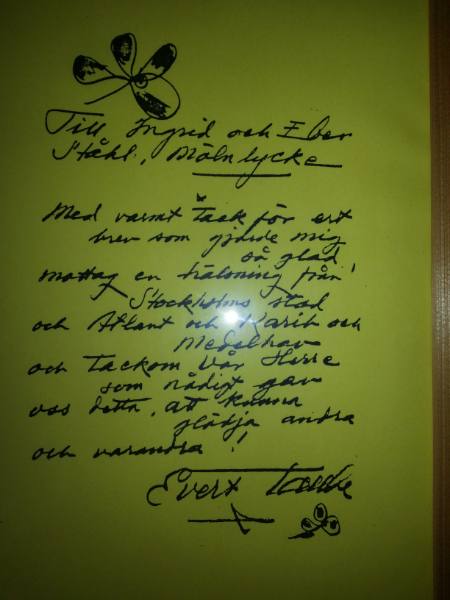 Till Ingrid och Eber
Ståhl, Mölnlycke
Med varmt Tack för ert
brev som gjorde mig
så glad
mottag en hälsning från
Stockholms stad
och Atlant och Karib och
Medelhav
och Tackom Vår Herre
som nådigt gav
oss detta, att kunna
glädja andra
och varandra!
Evert Taube